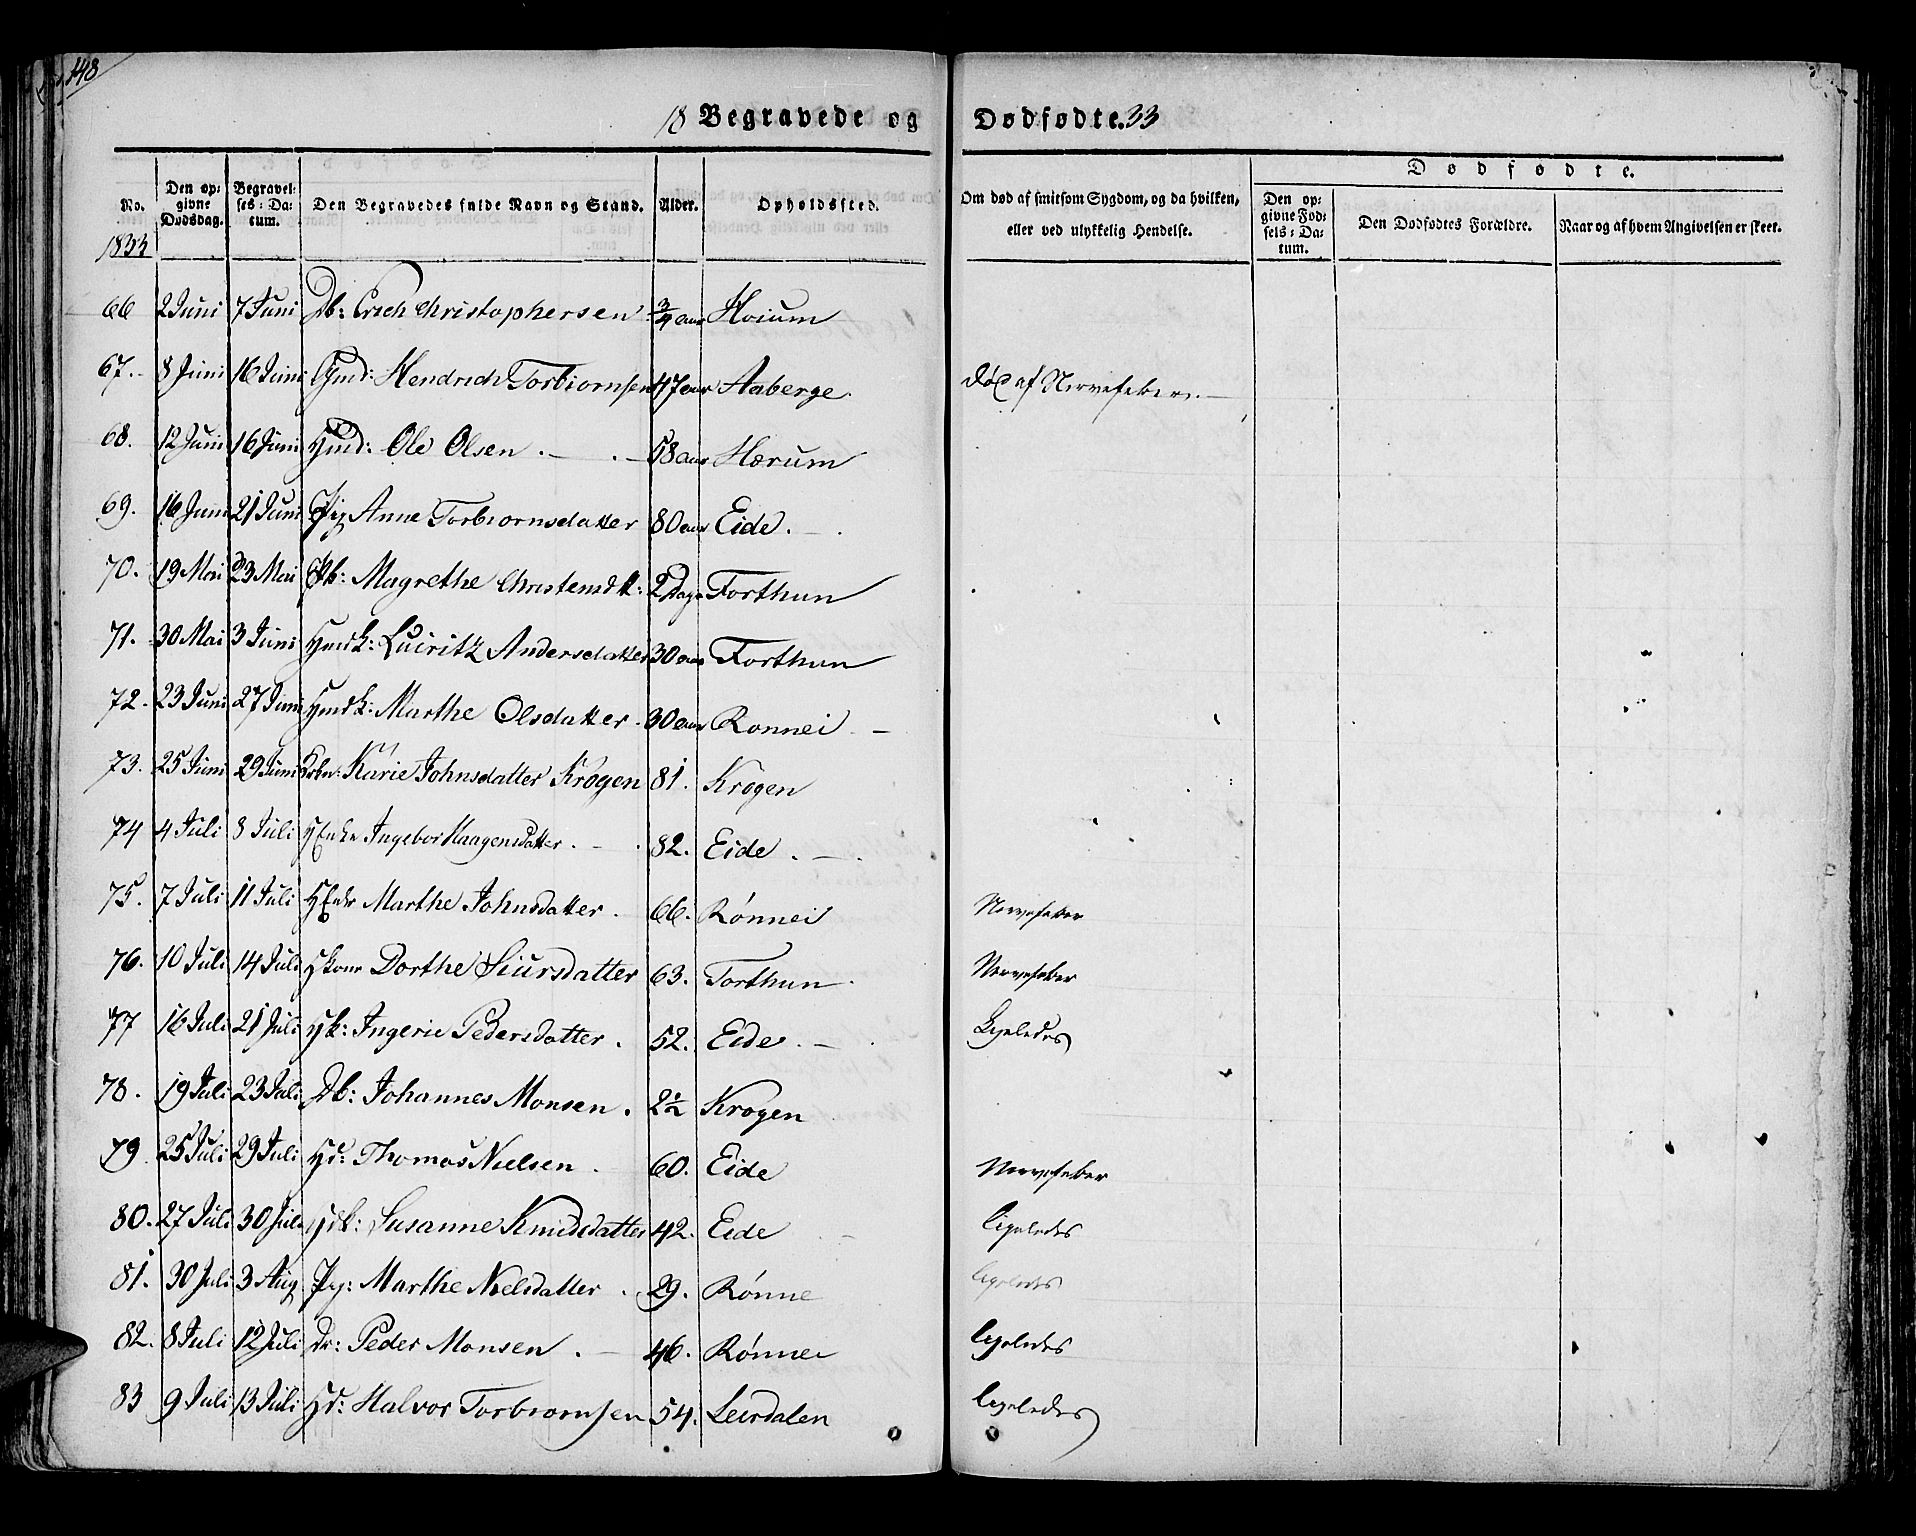 148
18 Begravede og Dødfødte. 33
No. Den opgivne Dødsdag. Begravelses-Datum. Den Begravedes fulde Navn og Stand. Alder. Opholdssted. Om død af smitsom Sygdom, og da hvilken, eller ved ulykkelig Hendelse. Dødfødte. Den opgivne Fødsels-Datum. Den Dødfødtes Forældre. Naar og af hvem Angivelsen er skeet.
1833
66 2 Juni 7 Juni Db: Erich Christophersen 3/4 aar Hoium
67. 8 Juni 16 Juni Gmd: Hendrich Torbiornsen 47 aar Aaberge. død af Nervefeber.
68. 12 Juni 16 Juni Hmd: Ole Olsen 58 aar Hærum
69. 16 Juni 21 Juni Pig Anne Torbiornsdatter 80 aar Eide.
70. 19 Mai 23 Mai Pb: Magrethe Christensdtt: 2 Dage Forthun
71. 30 Mai 3 Juni Hmdk: Luciritz Andersdatter 30 aar Forthun
72. 23 Juni 27 Juni Hmdk: Marthe Olsdatter 30 aar Ronnei
73. 25 Juni 29 Juni Karie Johnsdatter Krogen 81. Krogen
74 4 Juli 8 Juli HEnke Ingebor Haagensdatter. 82. Eide.
75. 7 Juli 11 Juli HEnke Marthe Johnsdatter. 66. Rønnei Nervefeber
76. 10 Juli 14 Juli Hkone Dorthe Siursdatter 63. Forthun. Nervefeber
77 16 Juli 21 Juli Hk: Ingerie Pedersdatter. 52. Eide. Ligeledes
78. 19 Juli 23 Juli Db: Johannes Monsen. 2½ Krogen
79 25 Juli 29 Juli Hd: Thomas Nielsen. 60. Eide Nervefeber
80. 27 Juli 30 Juli Hdk: Susanne Knudsdatter 42. Eide ligeledes
81. 30 Juli 3 Aug Pig: Marthe Nielsdatter. 29. Rønne ligeledes
82. 8 Juli 12 Juli Dr: Peder Monsen. 46. Rønnei ligeledes
83 9 Juli 13 Juli Hd: Halvor Torbiornsen 54. Leirdalen ligeledes